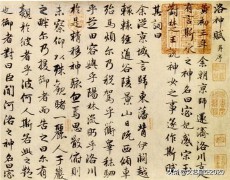 洛神賦 并序
黃初三年余朝京師還濟洛川古人
有言斯水之神名曰宓妃感宋玉對
楚王神女之事遂作斯賦
其詞曰
余從京域言歸東藩背伊闕越
轘轅經通谷陵景山日既西傾車
殆馬煩爾乃稅駕乎蘅皋秣駟
乎芝田容與乎楊林流眄乎洛川
於是精移神駭忽焉思散俯則
未察仰以殊觀睹一麗人于巖
之畔爾乃援御者而告之曰爾有
覿於彼者乎彼何人斯若此之艷
也御者對曰臣聞河洛之神名曰宓